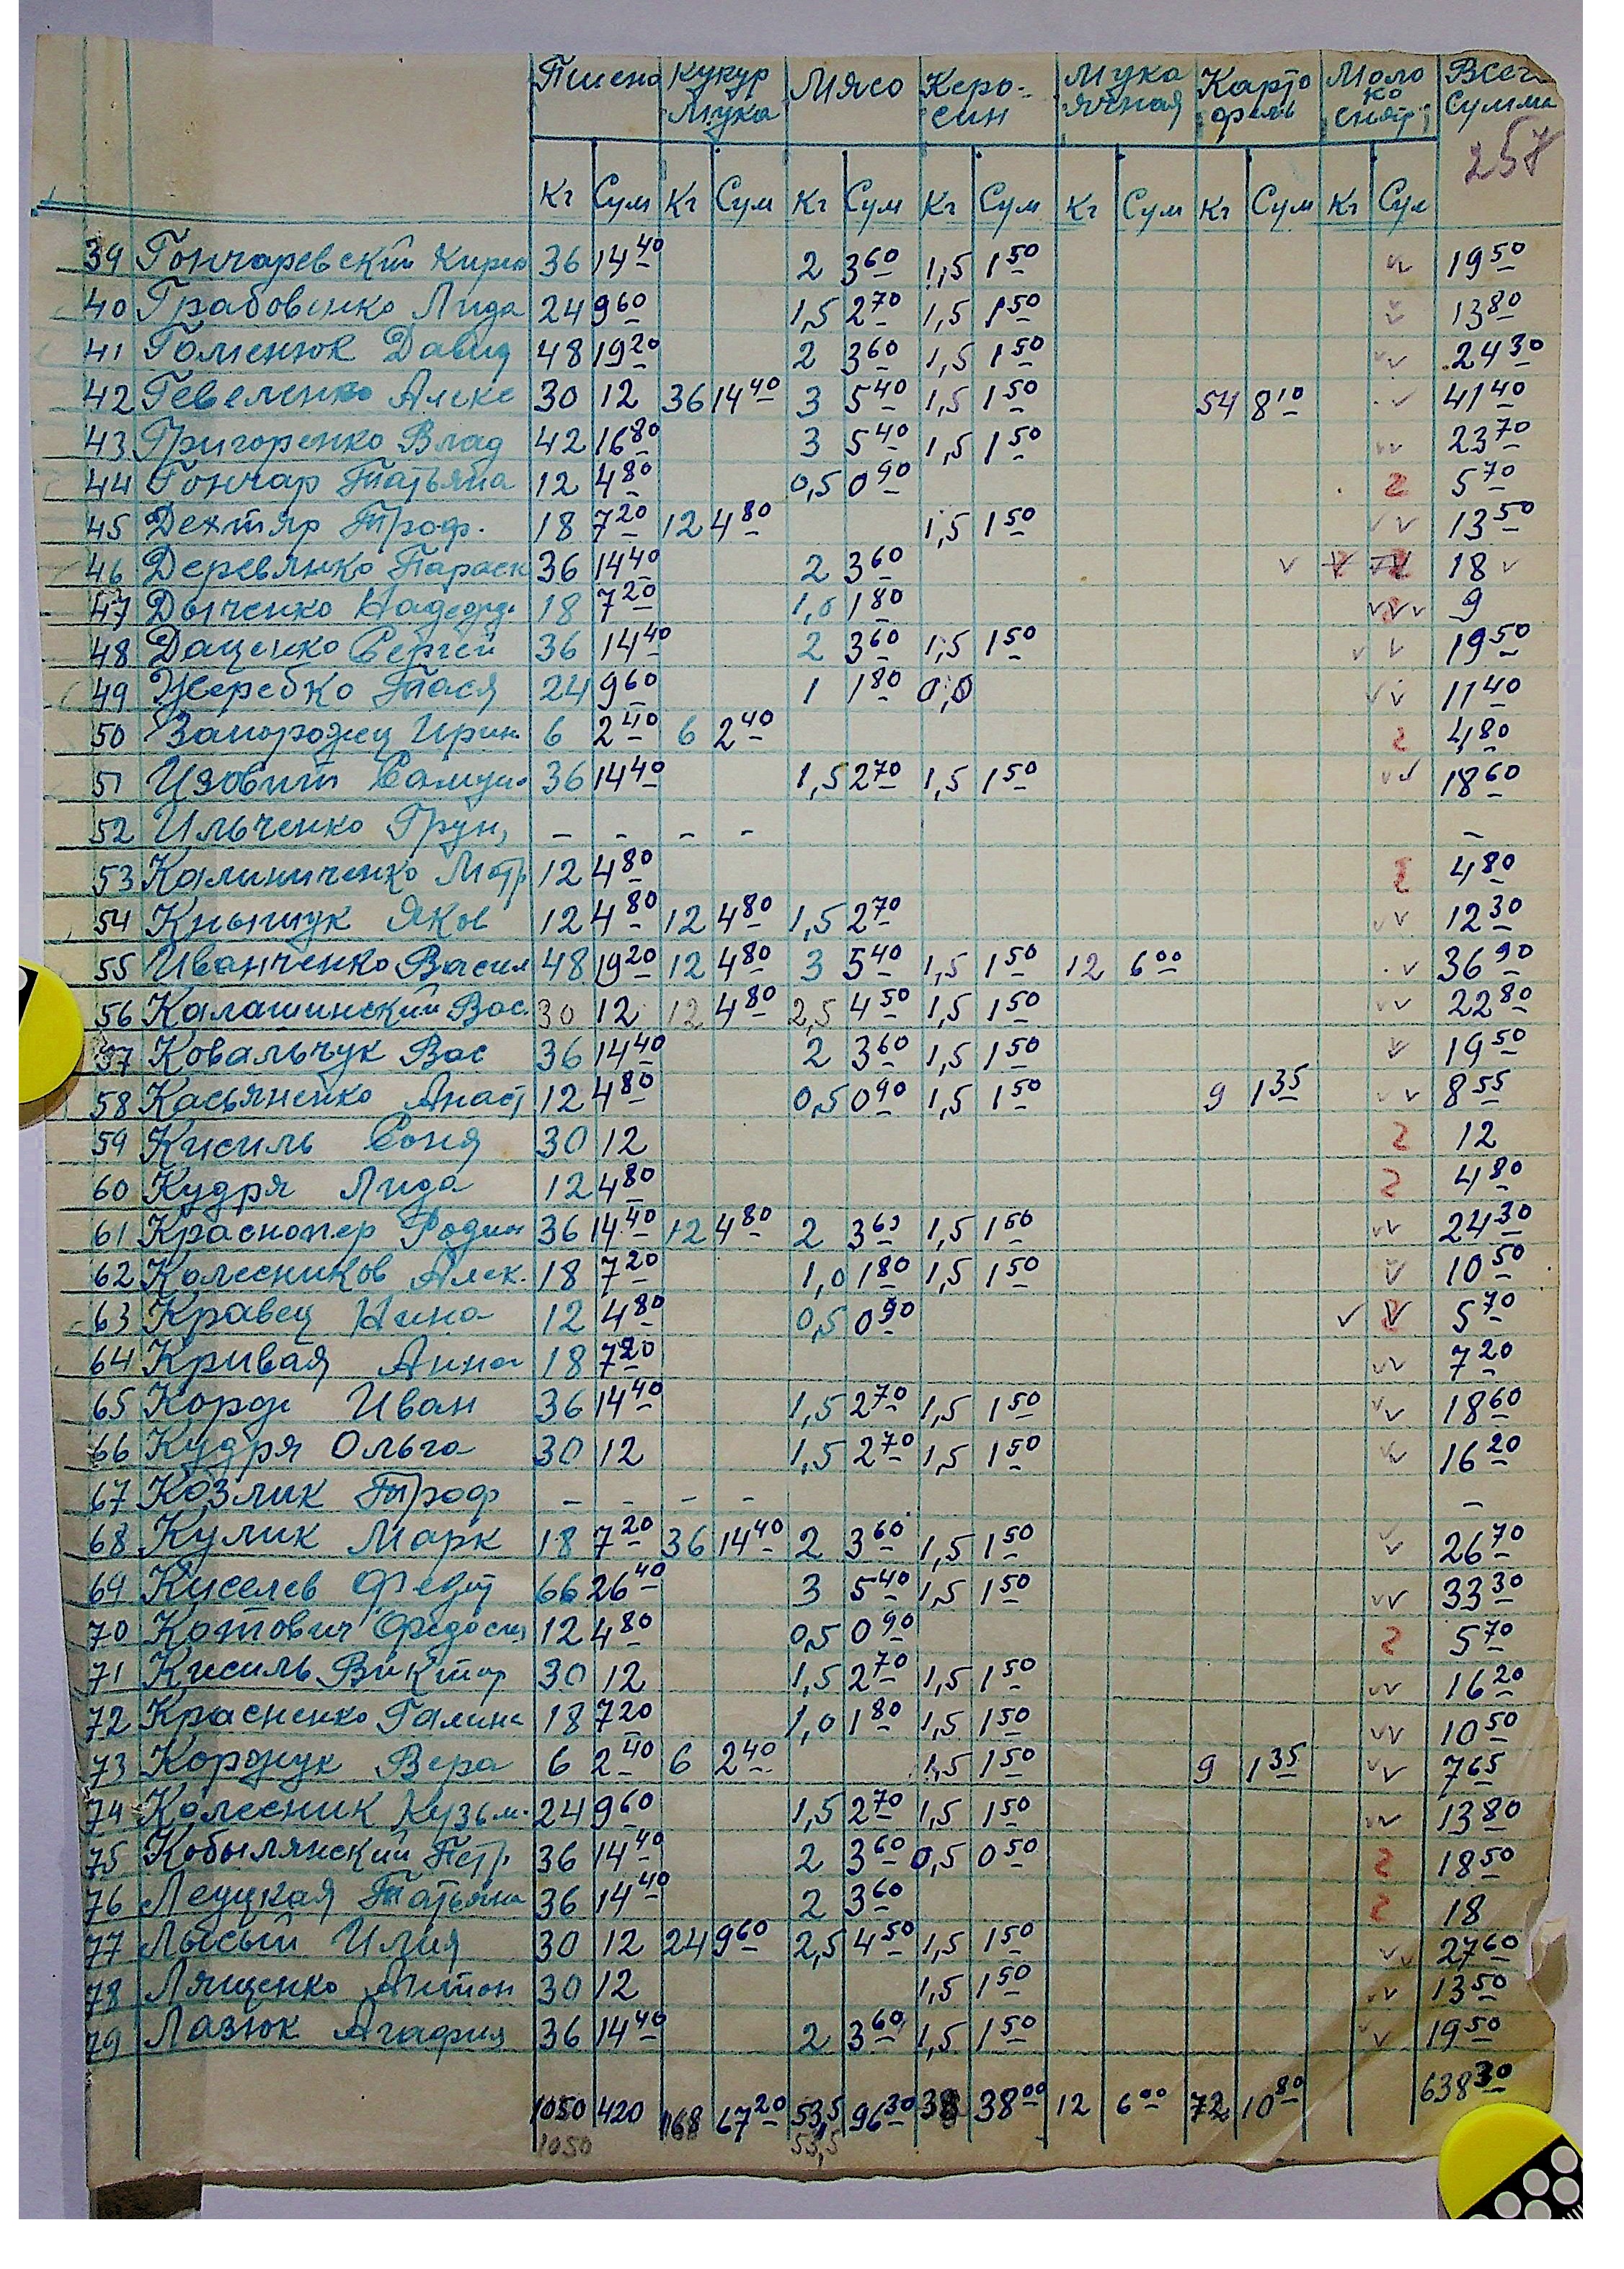 Пшено Кукур Мука Мясо Керо-син Мука ячная Карто фель Моло ко снят. Всего сумма
257
Кг Сум Кг Сум Кг Сум Кг Сум Кг Сум Кг Сум Кг Сум
39 Гончаревский Кирил 36 14 40 2 3 60 1,5 1 50 19 50
40 Грабовенко Лида 24 9 60 1,5 2 70 1,5 1 50 13 80
41 Гоменюк Давид 48 19 20 2 3 60 1,5 1 50 24 30
42 Гевеленко Алекс 30 12 36 14 40 3 5 40 1,5 1 50 54 8 10 41 40
43 Григоренко Влад 42 16 80 3 5 40 1,5 1 50 23 70
44 Гончар Татьяна 12 4 80 0,5 0 90 2 5 70
45 Дехтяр Троф. 18 7 20 12 4 80 1,5 1 50 13 50
46 Деревянко Параск 36 14 40 2 3 60 18
47 Дьяченко Надежд. 18 7 20 1,0 1 80 9
48 Даценко Сергей 36 14 40 2 3 60 1,5 1 50 19 50
49 Жеребко Тася 24 9 60 1 1 80 0,0 11 40
50 Запорожец Ирин. 6 2 40 6 2 40 2 4 80
51 Изовит Самуил 36 14 40 1,5 2 70 1,5 1 50 18 60
52 Ильченко Грун, – – – – –
53 Калиниченко Мотр 12 4 80 2 4 80
54 Кнышук Яков 12 4 80 12 4 80 1,5 2 70 12 30
55 Иванченко Васил 48 19 20 12 4 80 3 5 40 1,5 1 50 12 6 00 36 90
56 Калашинский Вас. 30 12 12 4 80 2,5 4 50 1,5 1 50 22 80
57 Ковальчук Вас 36 14 40 2 3 60 1,5 1 50 19 50
58 Касьяненко Анаст 12 4 80 0,5 0 90 1,5 1 50 9 1 35 8 55
59 Кисиль Соня 30 12 2 12
60 Кудря Лида 12 4 80 2 4 80
61 Краснопер Родион 36 14 40 12 4 80 2 3 60 1,5 1 50 24 30
62 Колесников Алек. 18 7 20 1,0 1 80 1,5 1 50 10 50
63 Кравец Нина 12 4 80 0,5 0 90 2 5 70
64 Кривая Анна 18 7 20 7 20
65 Корж Иван 36 14 40 1,5 2 70 1,5 1 50 18 60
66 Кудря Ольга 30 12 1,5 2 70 1,5 1 50 16 20
67 Козлик Троф – – – – –
68 Кулик Марк 18 7 20 36 14 40 2 3 60 1,5 1 50 26 70
69 Киселев Федот 66 26 40 3 5 40 1,5 1 50 33 30
70 Котович Федосия 12 4 80 0,5 0 90 2 5 70
71 Кисиль Виктор 30 12 1,5 2 70 1,5 1 50 16 20
72 Красненко Галина 18 7 20 1,0 1 80 1,5 1 50 10 50
73 Коржук Вера 6 2 40 6 2 40 1,5 1 50 9 1 35 7 65
74 Колесник Кузьм. 24 9 60 1,5 2 70 1,5 1 50 13 80
75 Кобылянский Петр. 36 14 40 2 3 60 0,5 0 50 2 18 50
76 Леуцкая Татьяна 36 14 40 2 3 60 2 18
77 Лысый Илия 30 12 24 9 60 2,5 4 50 1,5 1 50 27 60
78 Лященко Антон 30 12 1,5 1 50 13 50
79 Лазюк Агафия 36 14 40 2 3 60 1,5 1 50 19 50
1050 420 168 67 20 53,5 96 30 38 38 00 12 6 00 72 10 80 638 30
1050 53,5